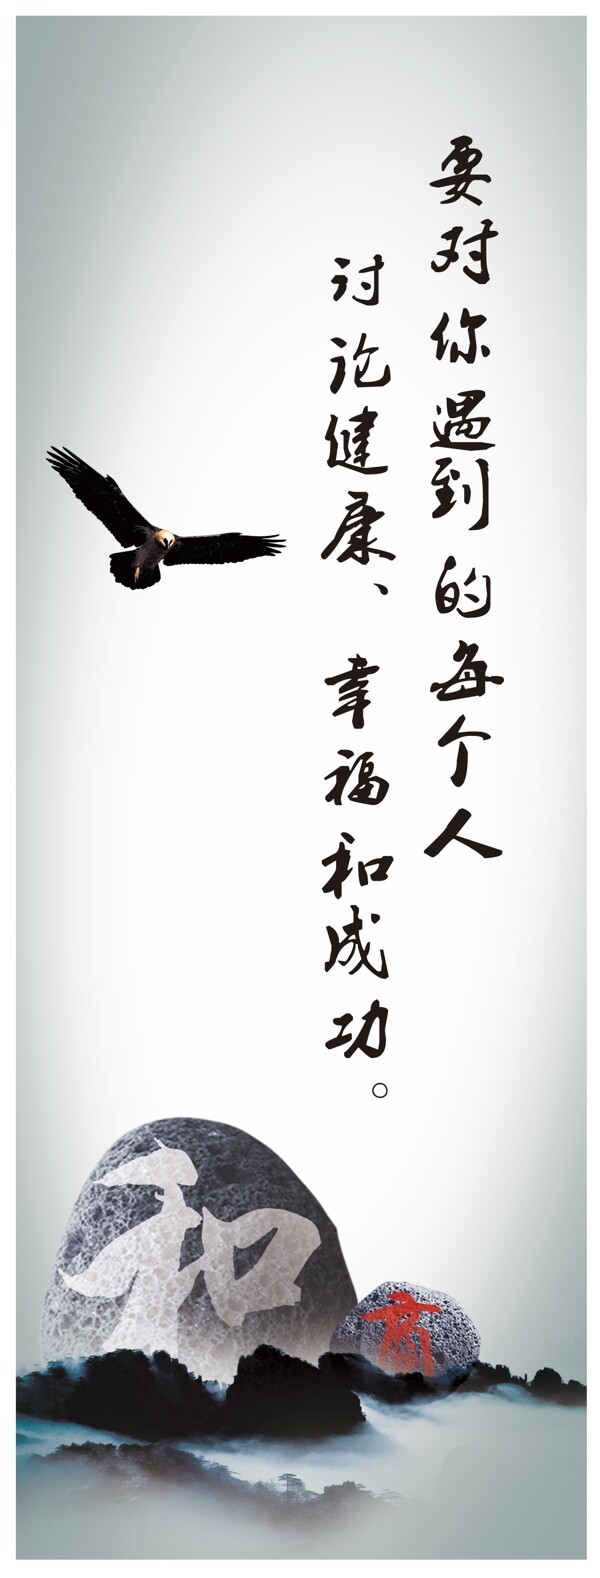 要对你遇到的每个人
讨论健康、幸福和成功。
和
商